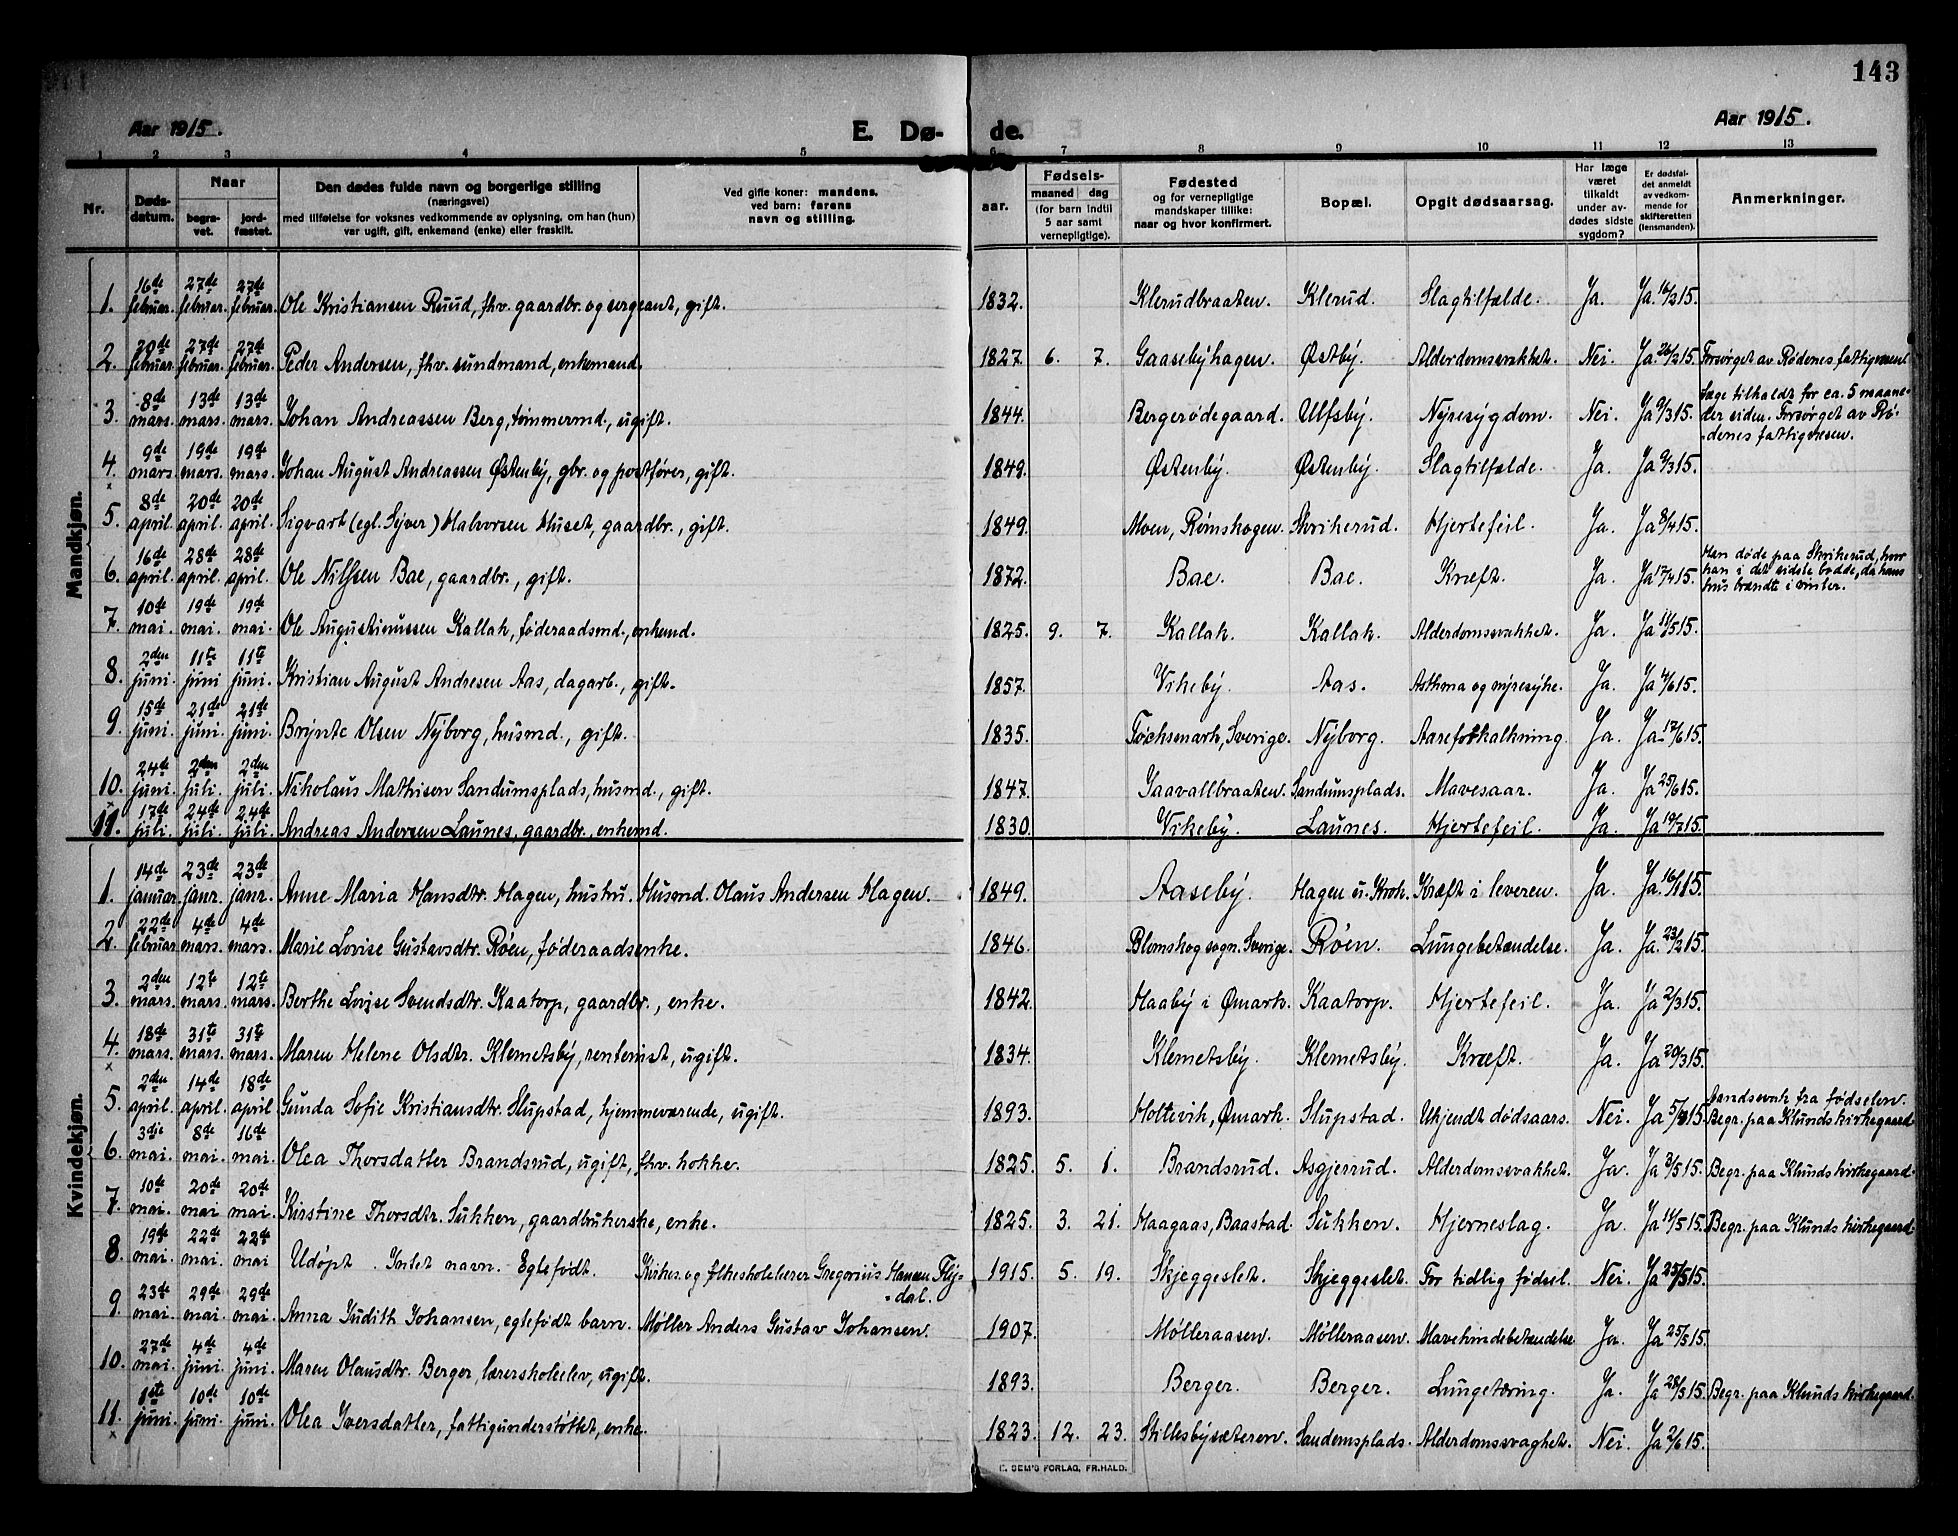 143
Aar 1915.
E. Dø- de.
Aar 1915.
1 2 3 4 5 6 7 8 9 10 11 12 13
Nr. Døds-datum. Naar begra-vet. jord-fæstet. Den dødes fulde navn og borgerlige stilling (næringsvei) med tilføielse for voksnes vedkommende av oplysning, om han (hun) var ugift, gift, enkemand (enke) eller fraskilt. Ved gifte koner: mandens. ved barn: farens navn og stilling. aar. Fødsels- maaned dag (for barn indtil 5 aar samt vernepligtige). Fødested og for vernepligtige mandskaper tillike: naar og hvor konfirmert. Bopæl. Opgit dødsaarsag. Har læge været tilkaldt under av-dødes sidste sygdom? Er dødsfal-det anmeldt av vedkom-mende for skifteretten (lensmanden). Anmerkninger.
Mandkjøn.
1. 16de februar. 27de februar. 27de februar. Ole Kristiansen Ruud, fhv. gaardbr. og sergeant, gift. 1832. Klerudbraaten. Klerud. Slagtilfælde. Ja. Ja 16/2 15.
2. 20de februar. 27de februar. 27de februar. Peder Andersen, fhv. sundmand, enkemand. 1827. 6. 7. Gaasebyhagen. Østby. Alderdomsvakhet. Nei. Ja 26/2 15. Forsørget av Rødenes fattigvæsen.
3. 8de mars. 13de mars. 13de mars. Johan Andreassen Berg, tømmermd., ugift. 1844. Bergerødegaard. Ulfsby. Nyresygdom. Nei. Ja 9/3 15. Læge tilkaldt for ca. 5 maane-
der siden. Forsørget av Rø-
denes fattigvæsen.
4. x 9de mars. 19de mars. 19de mars. Johan August Andreassen Østenby, gbr. og postfører, gift. 1849. Østenby. Østenby. Slagtilfælde. Ja. Ja 9/3 15.
5. 8de april. 20de april. 20de april. Sigvart (egl. Syver) Halvorsen Huset, gaardbr., gift. 1849. Moen, Rømskogen. Skrikerud. Hjertefeil. Ja. Ja 8/4 15.
6. 16de april. 28de april. 28de april. Ole Nilssen Bae, gaardbr., gift. 1872. Bae. Bae. Kræft. Ja. Ja 17/4 15. Han døde paa Skrikerud, hvor
han i det sidste bodde, da hans
hus brændte i vinter.
7. 10de mai. 19de mai. 19de mai. Ole Augustinussen Kallak, føderaadsmd., enkemd. 1825. 9. 7. Kallak. Kallak. Alderdomsvakhet. Ja. Ja 11/5 15.
8. 2den juni. 11te juni 11te juni. Kristian August Andresen Aas, dagarb., gift. 1857. Vikeby. Aas. Asthma og nyresyke. Ja. Ja 4/6 15.
9. 15de juni. 21de juni. 21de juni. Brynte Olsen Nyborg, husmd., gift. 1835. Töcksmark, Sverige. Nyborg. Aareforkalkning. Ja. Ja 17/6 15.
10. x 24de juni. 2den juli. 2den juli. Nikolaus Mathisen Sandumsplads, husmd., gift. 1847. Gaavallbraaten. Sandumsplads. Mavesaar. Ja. Ja 25/6 15.
11. 17de juli. 24de juli. 24de juli. Andreas Andersen Launes, gaardbr., enkemd. 1830. Vikeby. Launes. Hjertefeil. Ja. Ja 19/7 15.
Kvindekjøn.
1. 14de januar. 23de janr. 23de janr. Anne Maria Hansdtr. Hagen, hustru. Husmd. Olaus Andersen Hagen. 1849. Aaseby. Hagen u. Krok. Kræft i leveren. Ja. Ja 16/1 15.
2. 22de februar. 4de mars. 4de mars. Marie Lovise Gustavsdtr. Røen, føderaadsenke. 1846. Blomskog sogn. Sverige. Røen. Lungebetændelse. Ja. Ja 23/2 15.
3. 2den mars. 12te mars. 12te mars. Berthe Lovise Svendsdtr. Kaatorp, gaardbr., enke. 1842. Haaby i Ømark. Kaatorp. Hjertefeil. Ja. Ja 2/3 15.
4. x 18de mars. 31te mars. 31te mars. Maren Helene Olsdtr. Klemetsby, rentenist, ugift. 1834. Klemetsby. Klemetsby. Kræft. Ja. Ja 20/3 15.
5. 2den april. 14de april. 18de april. Gunda Sofie Kristiansdtr. Slupstad, hjemmeværende, ugift. 1893. Holtevik, Ømark. Slupstad. Ukjendt dødsaars. Nei. Ja 5/4 15. Aandssvak fra fødselen.
Begr. paa Klunds kirkegaard.
6. 3die mai. 8de mai. 16de mai. Olea Thorsdatter Brandsrud, ugift, fhv. kokke. 1825. 5. 1. Brandsrud. Asgjerrud. Alderdomssvakhet. Ja. Ja 3/5 15. Begr. paa Klunds kirkegaard.
7. 10de mai. 20de mai 20de mai. Kirstine Thorsdtr. Sukken, gaardbrukerske, enke. 1825. 3. 21. Haagaas, Baastad. Sukken. Hjerneslag. Ja. Ja 11/5 15. Begr. paa Klunds kirkegaard.
8. 19de mai. 22de mai. 22de mai Udøpt. Intet navn. Egtefødt. Kirkes. og folkeskolelærer Gregorius Hansen Flys-
dal. 1915. 5. 19. Skjeggeslet. Skjeggeslet. For tidlig fødsel. Nei. Ja 25/5 15.
9. 23de mai. 29de mai. 29de mai Anna Judith Johansen, egtefødt barn. Møller Anders Gustav Johansen. 1907. Mølleraasen. Mølleraasen. Mavehindebetændelse Ja. Ja 25/5 15.
10. 27de mai. 4de juni. 4de juni. Maren Olausdtr. Berger, lærerskoleelev, ugift. 1893. Berger. Berger. Lungetæring. Ja. Ja 28/5 15. Begr. paa Klunds kirkegaard.
11. x 1ste juni. 10de juni. 10de juni. Olea Iversdatter, fattigunderstøttet, enke. 1823. 12. 23. Stillesbysæteren. Sandemsplads. Alderdomssvaghet. Nei. Ja 2/6 15.
E. SEM'S FORLAG, FR.HALD.